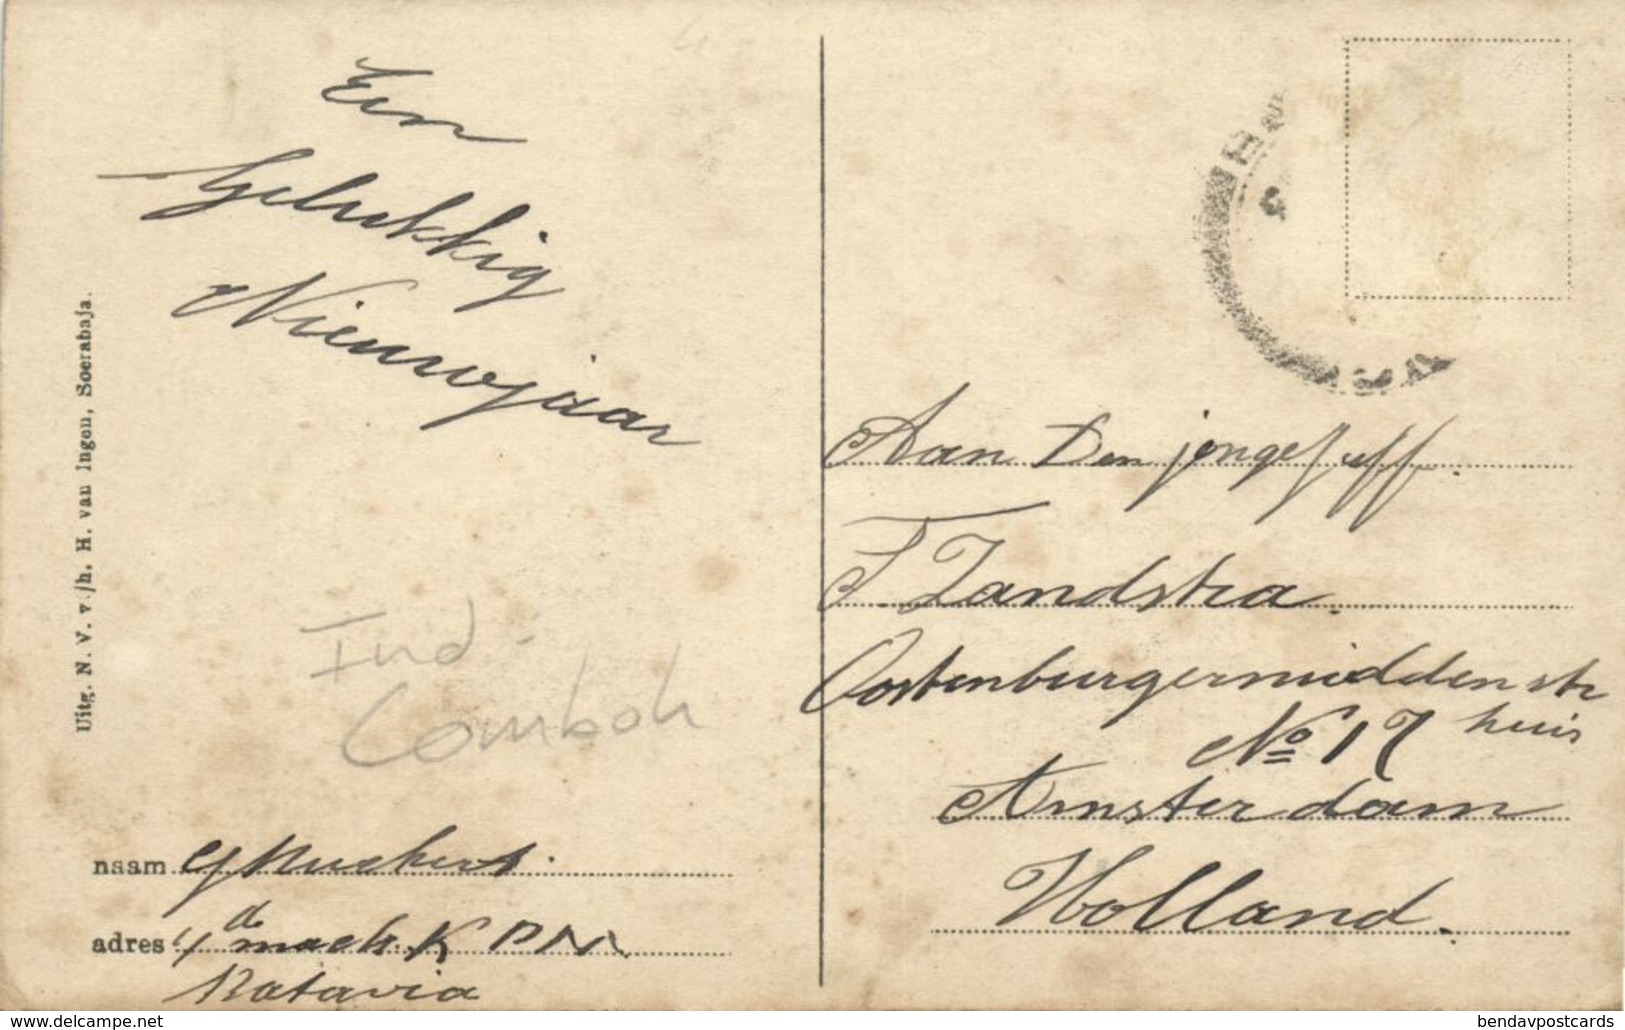 Een
Gelukkig
Nieuwjaar
Uitg. N. V. v./h. H. van Ingen, Soerabaja.
Ind
Lombok
naam
adres 4de mach. K P M
Batavia
Aan Den jongejuff.
F. Zandstra.
Oostenburgermiddenstr
No 17 huis
Amsterdam
Holland.
www.delcampe.net
bendavpostcards